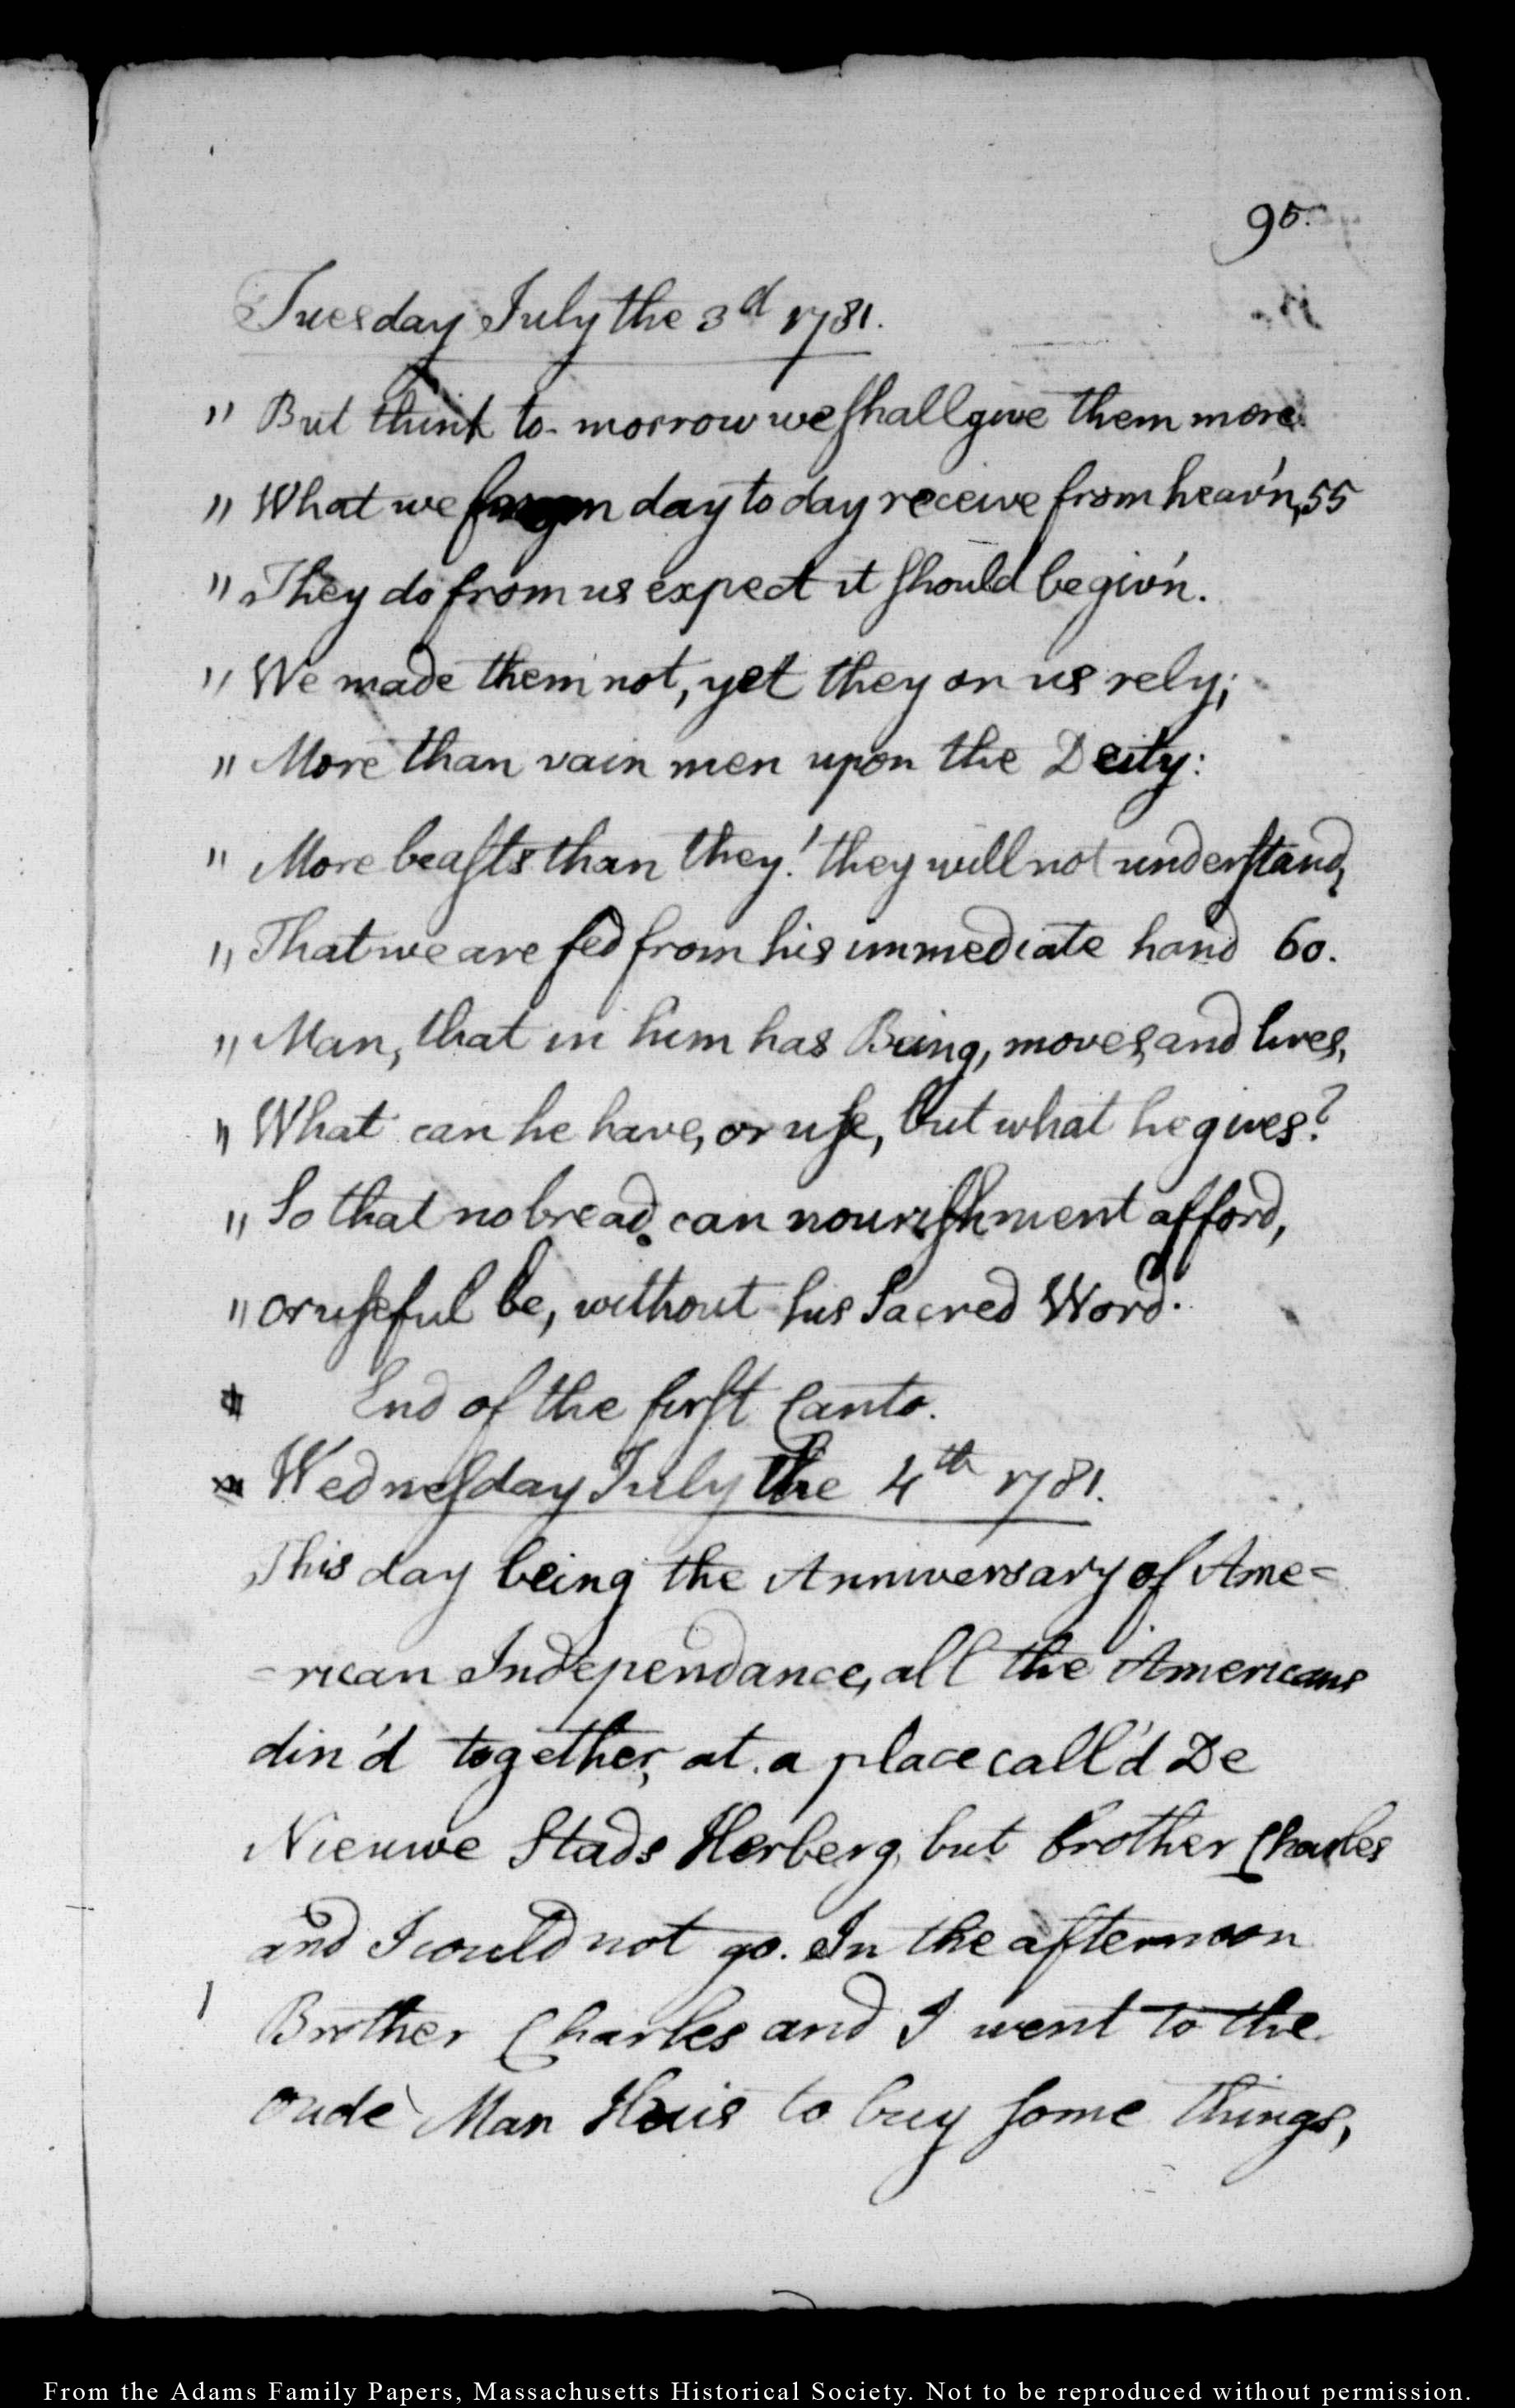 95.
Tuesday July the 3d 1781.
" But think to-morrow we shall give them more
" What we from day to day receive from heav'n, 55
" They do from us expect it should be giv'n.
" We made them not, yet they on us rely;
" More than vain men upon the Deity:
" More beasts than they! they will not understand,
" That we are fed from his immediate hand 60.
" Man, that in him has Being, moves, and lives,
" What can he have, or use, but what he gives?
" So that no bread can nourishment afford,
" or useful be, without his Sacred Word.
End of the first Canto.
Wednesday July the 4th 1781.
This day being the Anniversary of Ame=
=rican Independance, all the Americans
din'd together, at a place call'd De
Nieuwe Stads Herberg, but brother Charles
and I could not go. In the afternoon
Brother Charles and I went to the
oude Man Huis to buy some things,
From the Adams Family Papers, Massachusetts Historical Society. Not to be reproduced without permission.